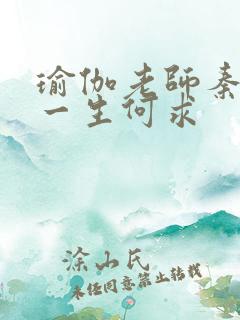 瑜伽老师秦
一生何求
涂山氏
未经同意禁止转载